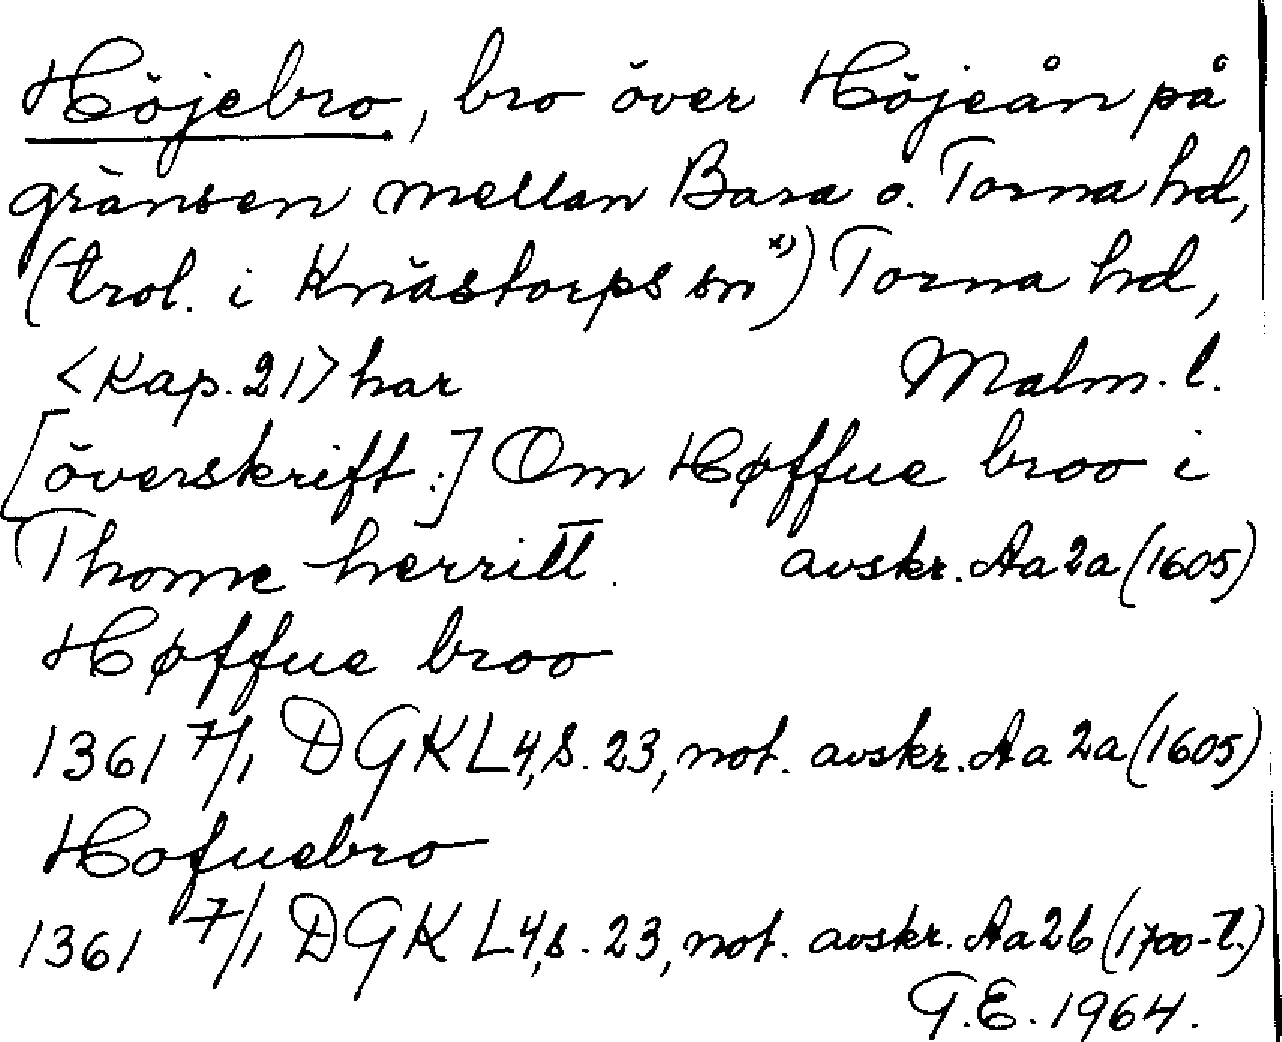 Höjebro, bro över Höjeån på
gränsen mellan Bara o. Torna hd,
(trol. i Knästorps sn x)) Torna hd,
<Kap. 21> har Malm. l.
[överskrift:] Om Høffue broo i
Thorne herritt. avskr. Aa 2a (1605)
Høffue broo
1361 7/1 DGK L4, s. 23, not. avskr. Aa 2a (1605)
Hofuebro
1361 7/1 DGK L4, s. 23, not. avskr. Aa 2b (1700-t.)
G.E. 1964.